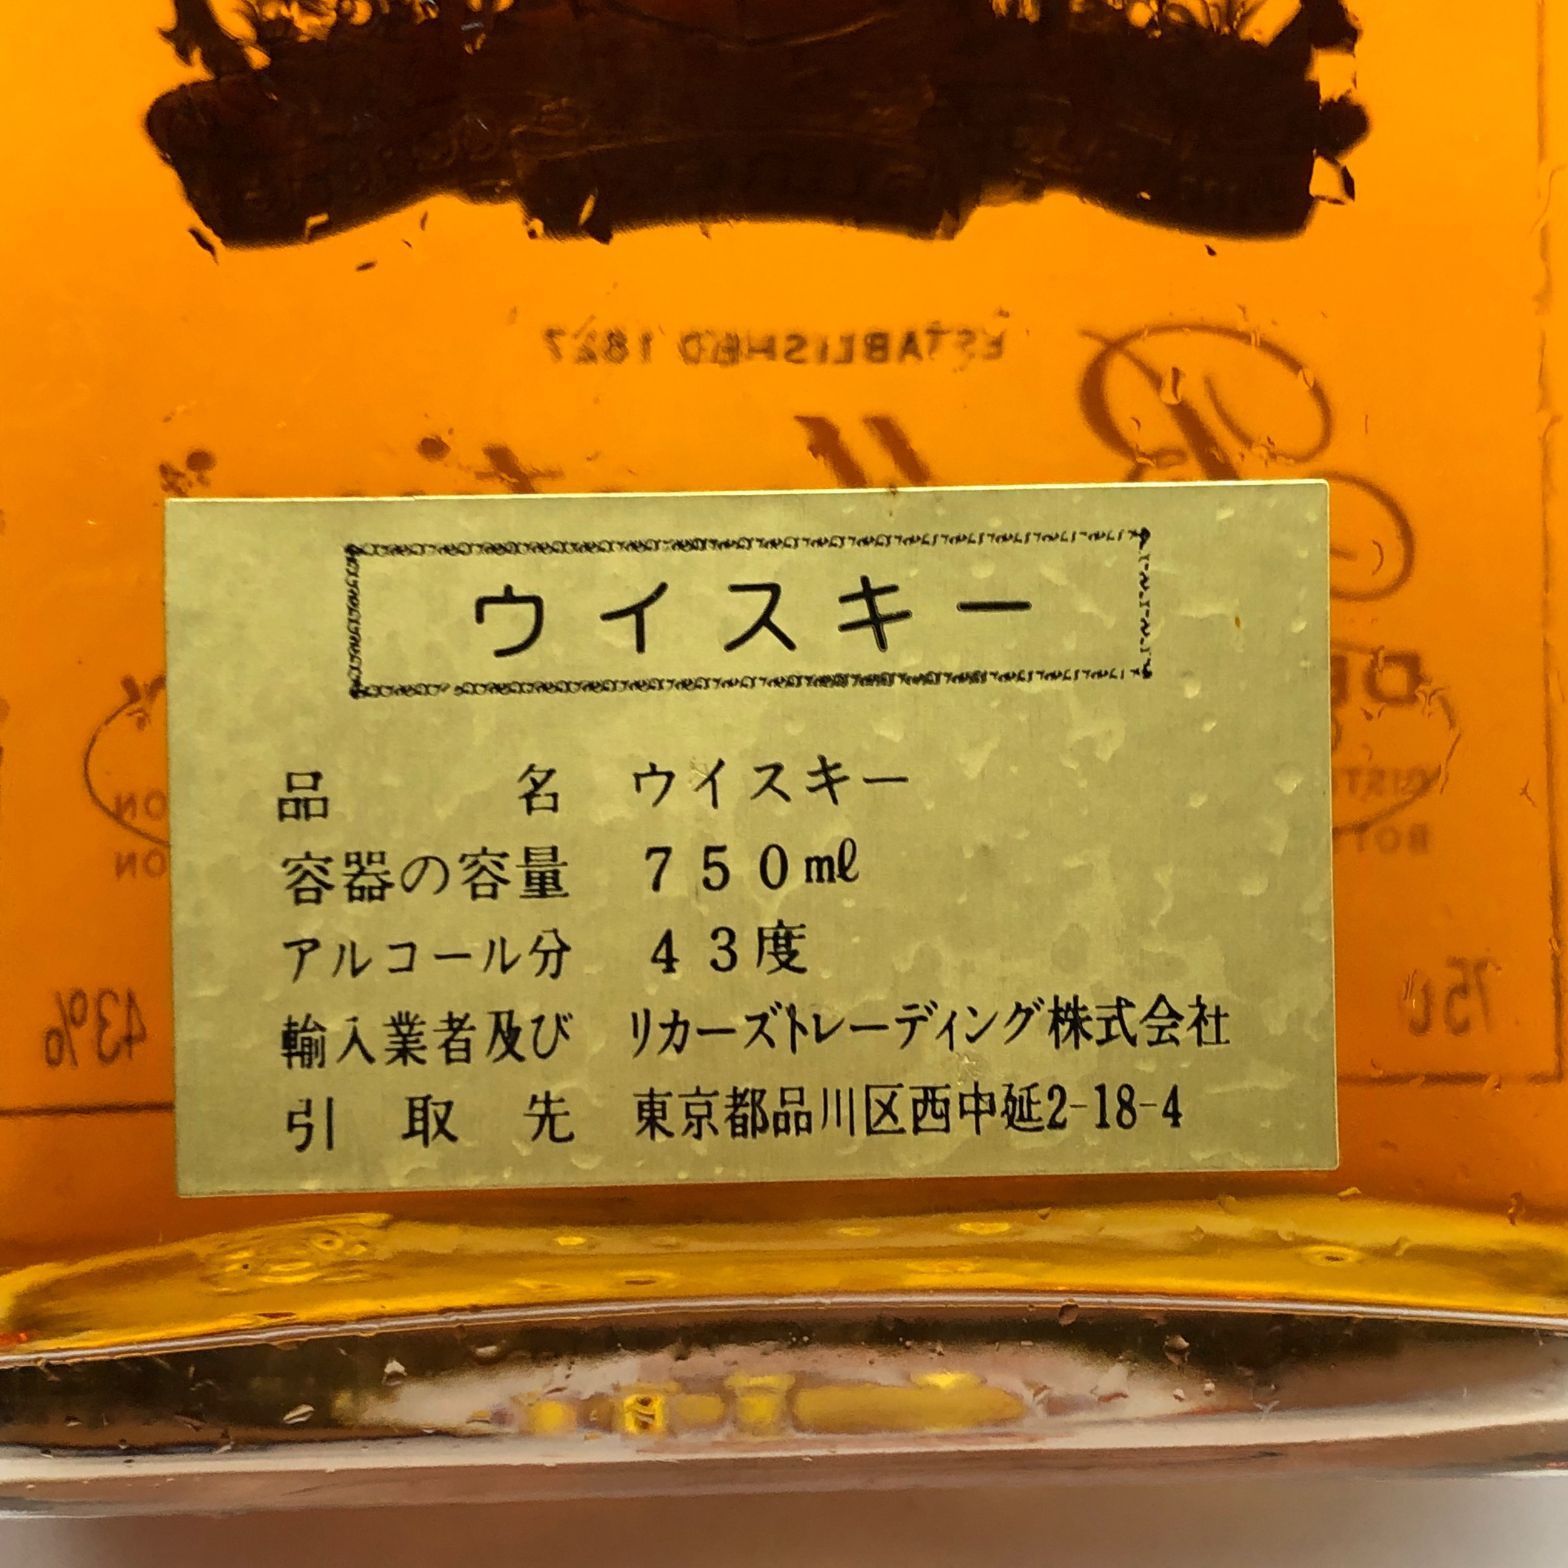 ESTABLISHED 1827
ウイスキー
品名 ウイスキー
容器の容量 750ml
アルコール分 43度
輸入業者及び リカーズトレーディング株式会社
引取先 東京都品川区西中延2-18-4
43%
750